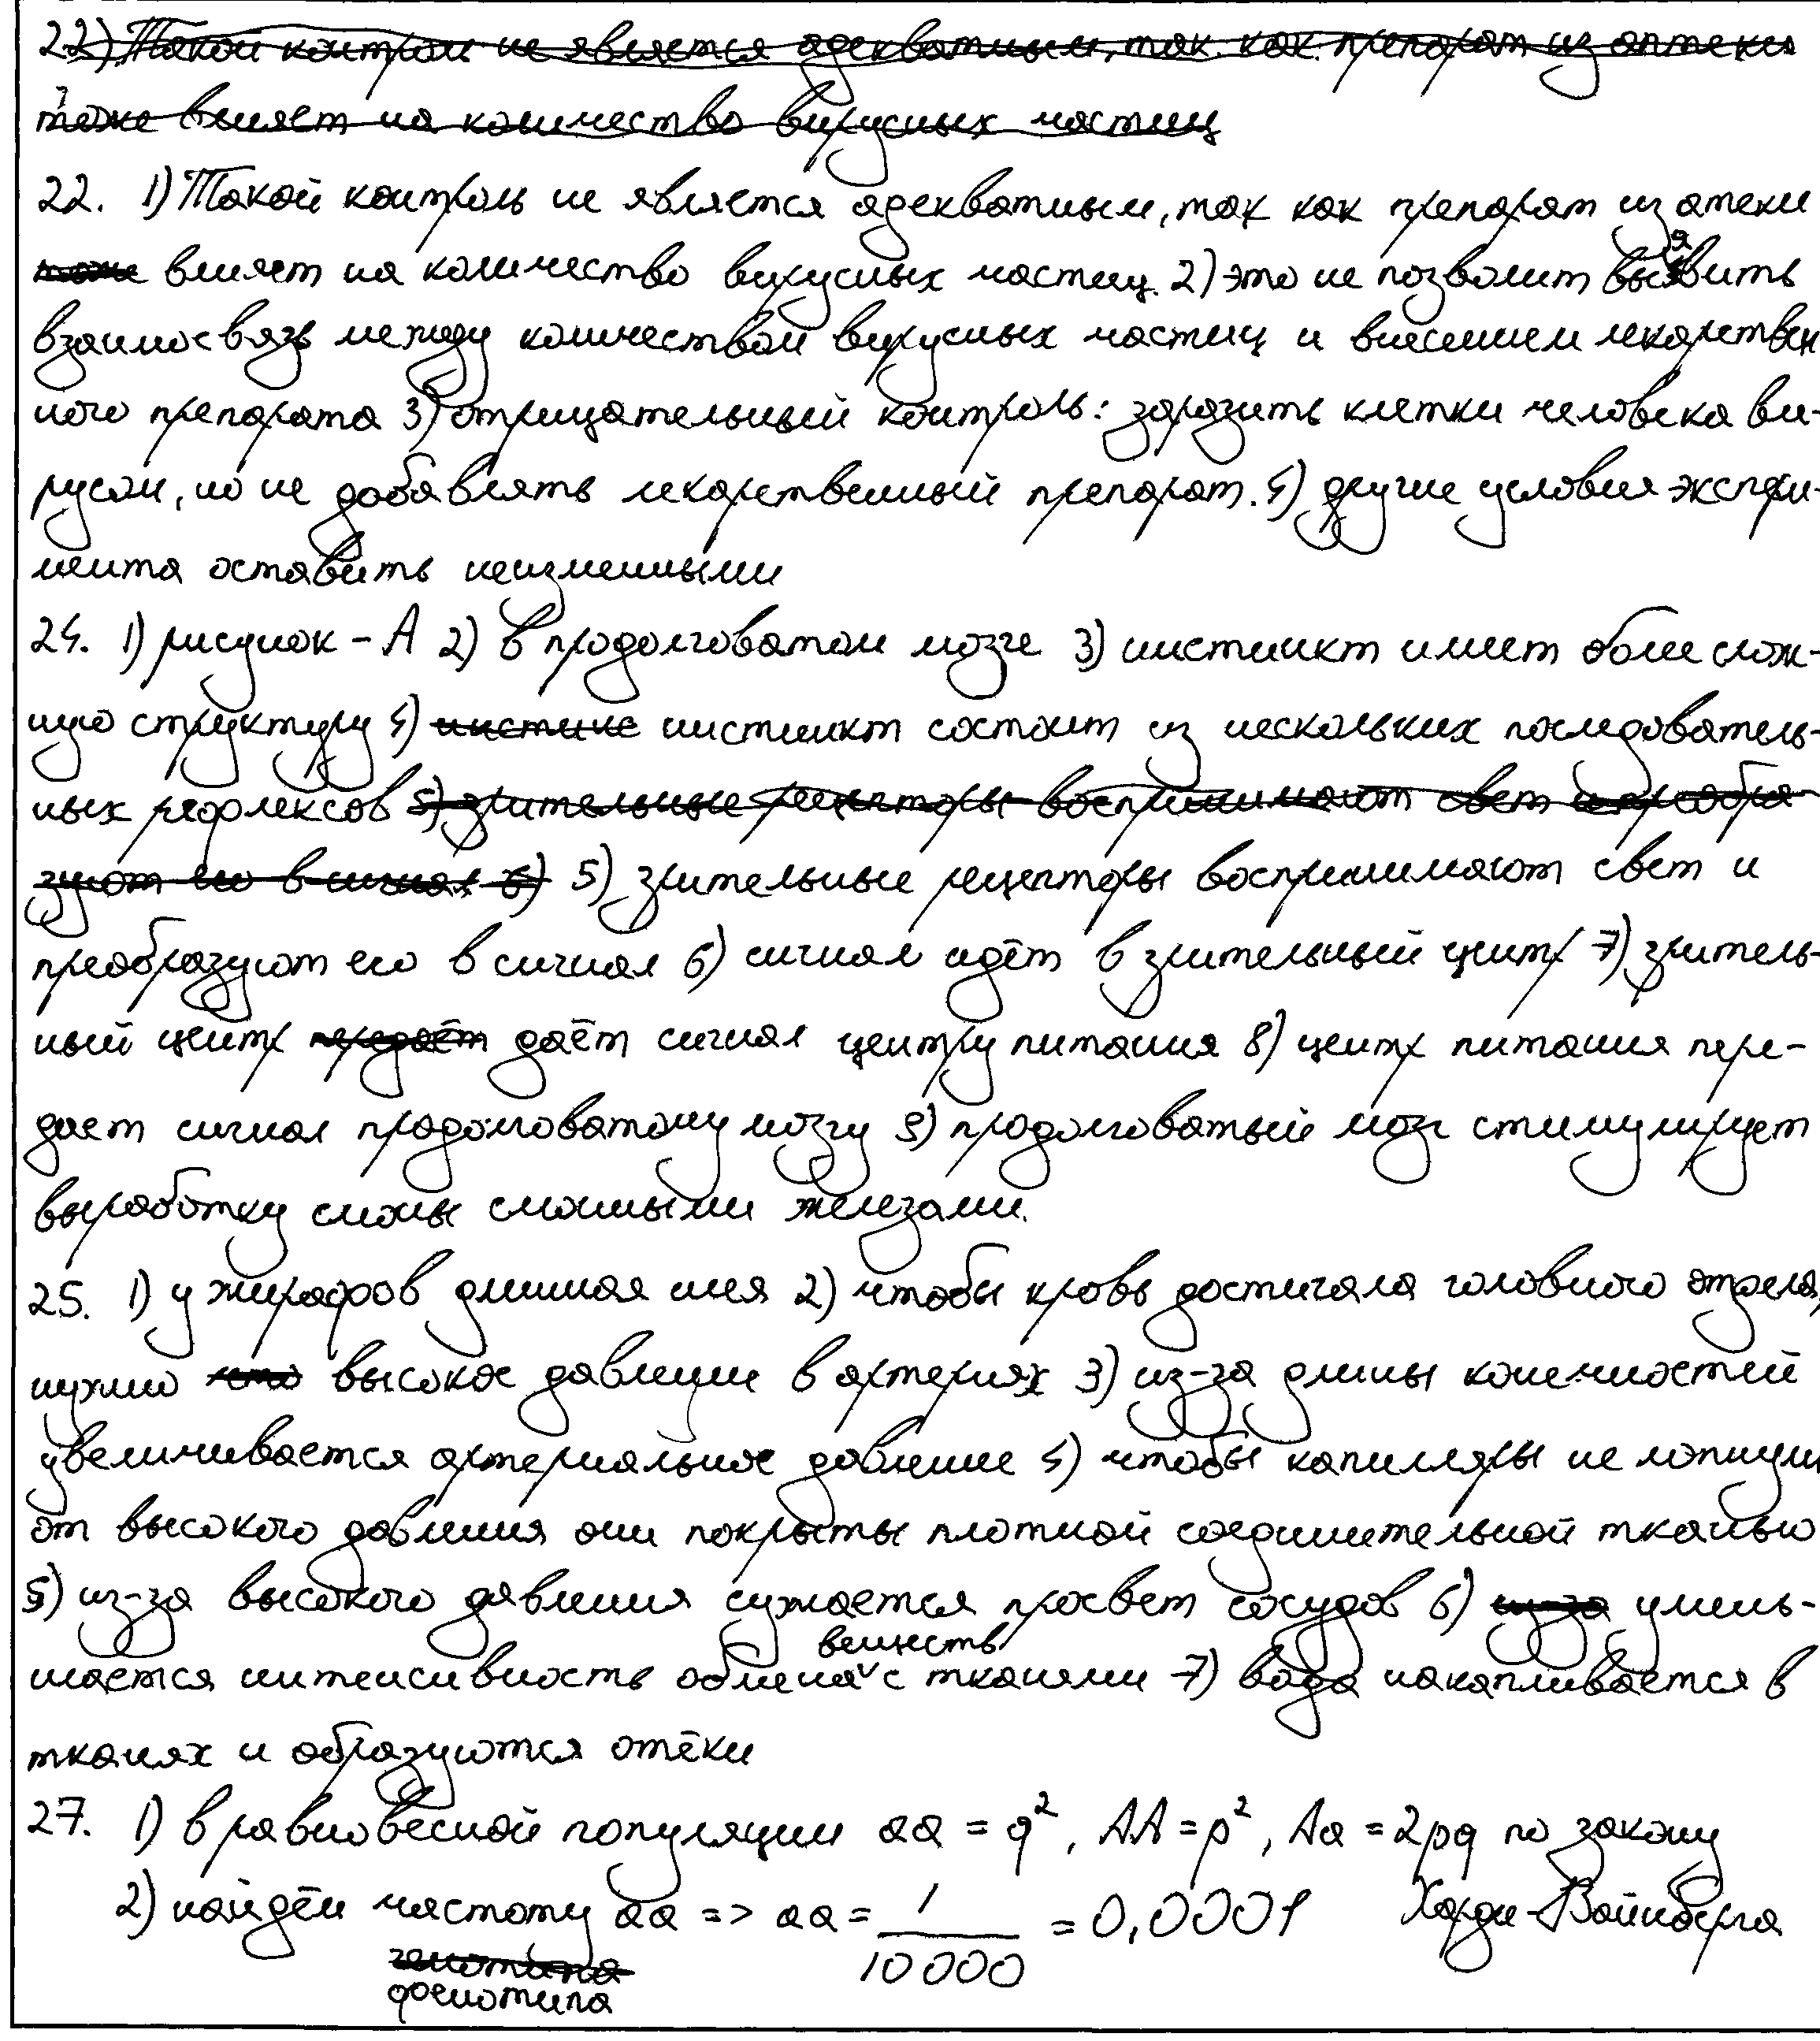 22) Такой контроль не является адекватным, так как препарат из аптеки
тоже влияет на количество вирусных частиц
22. 1) Такой контроль не является адекватным, так как препарат из атеки
тоже влияет на количество вирусных частиц. 2) это не позволит выявить
взаимосвязь между количеством вирусных частиц и внесением лекарствен
ного препарата 3) отрицательный контроль: заразить клетки человека ви-
русом, но не добавлять лекарственный препарат. 4) другие условия экспери-
мента оставить неизменными
24. 1) рисунок - А 2) в продолговатом мозге 3) инстинкт имеет более слож-
ную структуру 4) инстинк инстинкт состоит из нескольких последователь-
ных рефлексов 5) зрительные рецепторы воспринимают свет и преобра-
зуют его в сигнал 6) 5) зрительные рецепторы воспринимают свет и
преобразуют его в сигнал 6) сигнал идёт в зрительный центр 7) зритель-
ный центр передаёт даёт сигнал центру питания 8) центр питания пере-
дает сигнал продолговатому мозгу 9) продолговатый мозг стимулирует
выработку слюны слюнными железами.
25. 1) у жирафов длинная шея 2) чтобы кровь достигала головного отдела,
нужно что высокое давление в артериях 3) из-за длины конечностей
увеличивается артериальное давление 4) чтобы капилляры не лопнули
от высокого давления они покрыты плотной соединительной тканью
5) из-за высокого давления сужается просвет сосудов 6) из-за умень-
шается интенсивность обмена веществ с тканями 7) вода накапливается в
тканях и образуются отёки
27. 1) в равновесной популяции aa = q², AA = p², Aa = 2pq по закону
Харди-Вайнберга
2) найдём частоту генотипа фенотипа aa => aa = 1/10000 = 0,0001